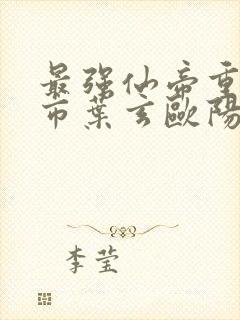 最強仙帝重
市葉玄歐陽
李瑩